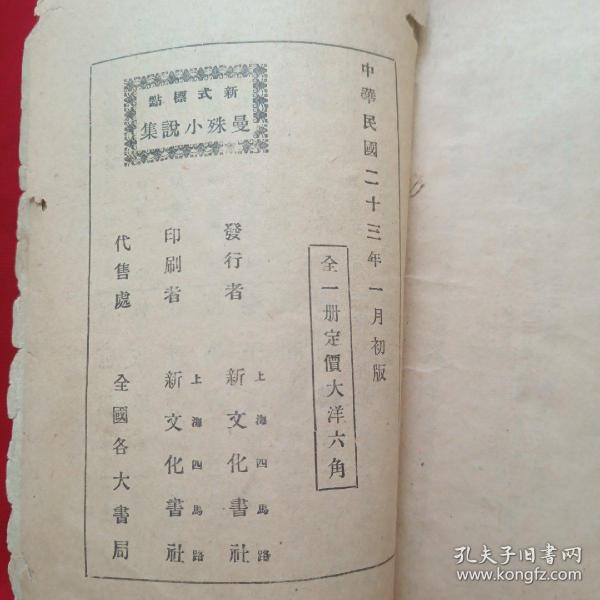 中華民國二十三年一月初版
全一册定價大洋六角
新式標點
曼殊小說集
發行者 上海四馬路 新文化書社
印刷者 上海四馬路 新文化書社
代售處 全國各大書局
孔夫子旧书网
www.kongfz.com